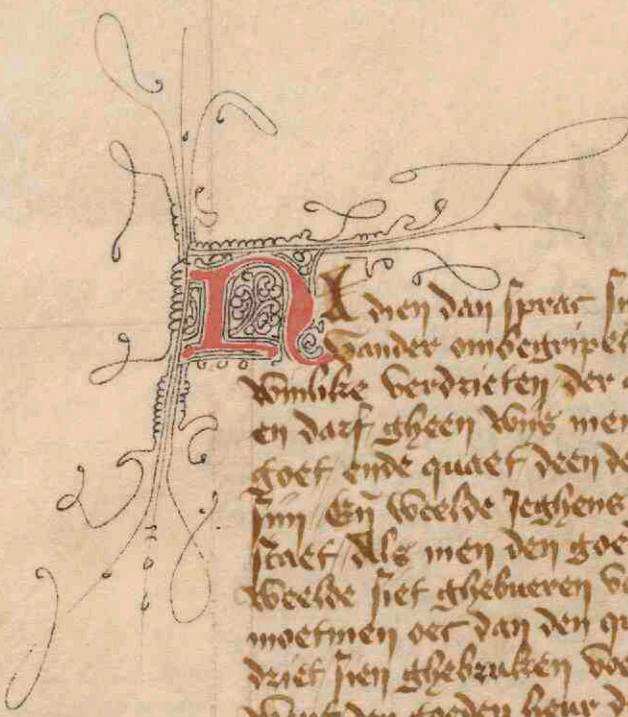 NA dien dan sprac si
Vander ombegripel
wijnlike verdrieten der
en darf gheen wijs men
goet ende quaet deen de
sijn En weelde Jeghens
staet Als men den goe
weelde siet ghebueren vo
moetmen oec dan den qu
driet sien ghebruken voe
Want den goeden heur d